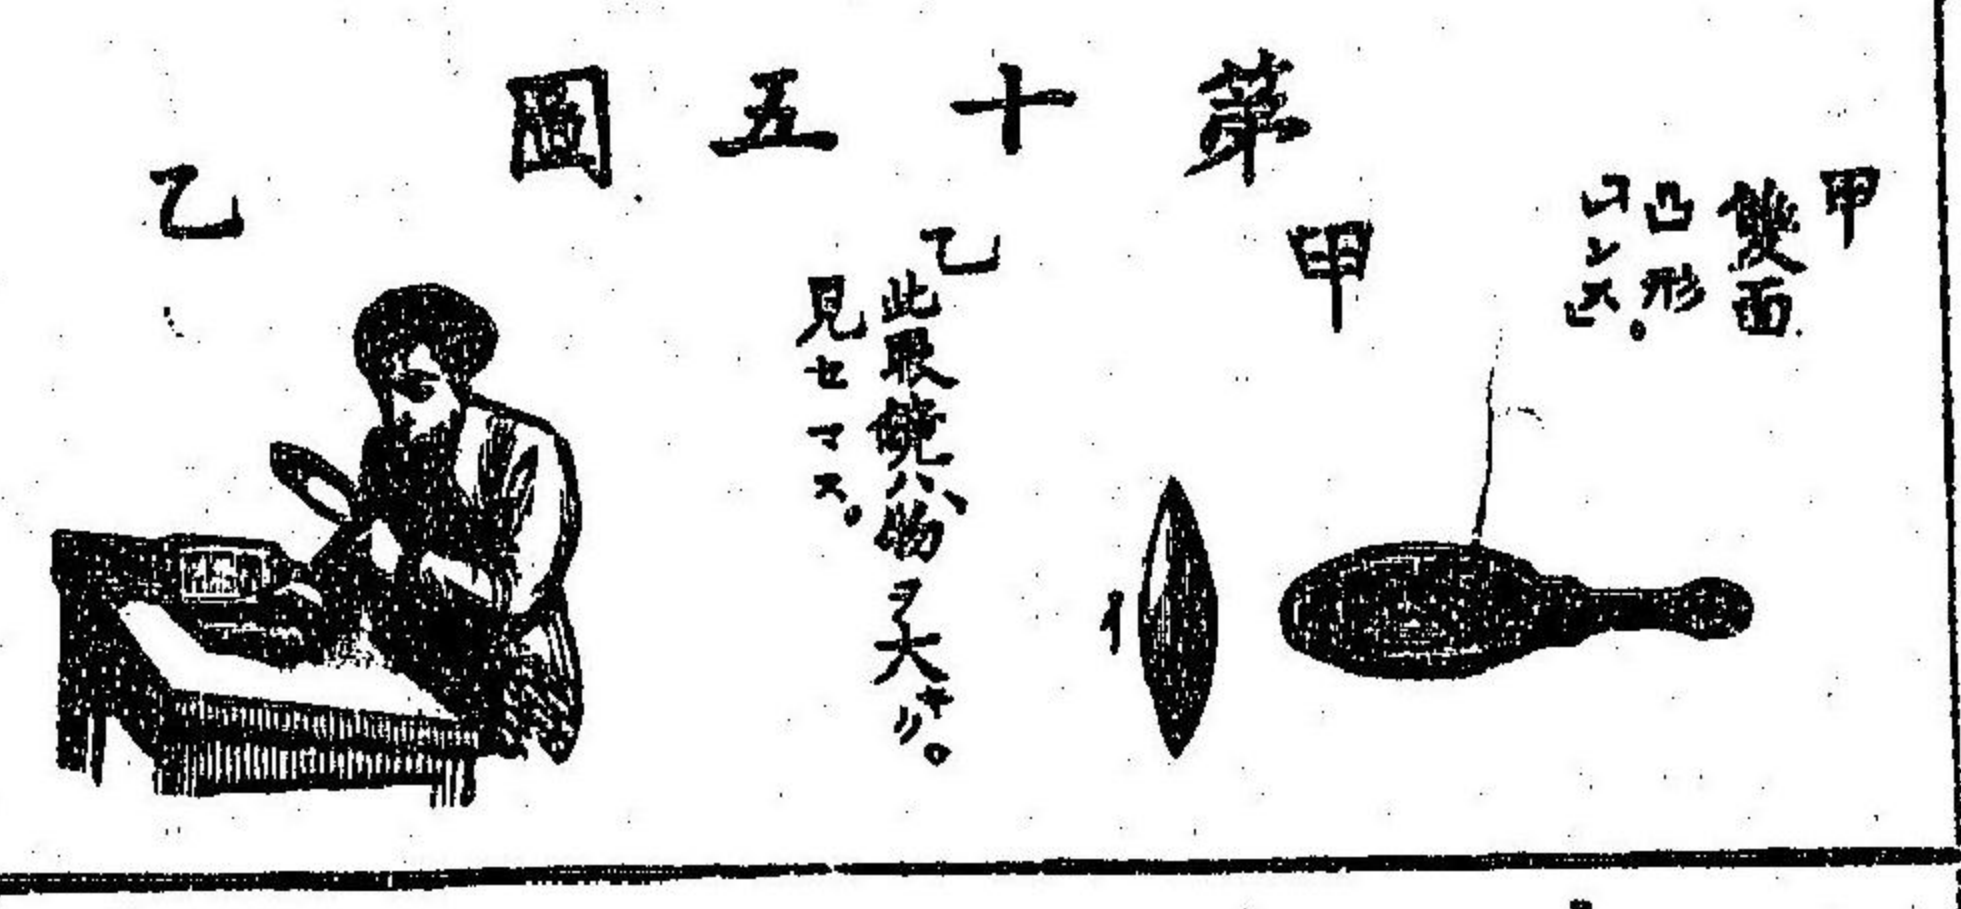 第十五圖
甲
雙面
凸形
「レンス」。
甲
イ
乙
此眼鏡ハ、物ヲ大キク。
見セマス。
乙